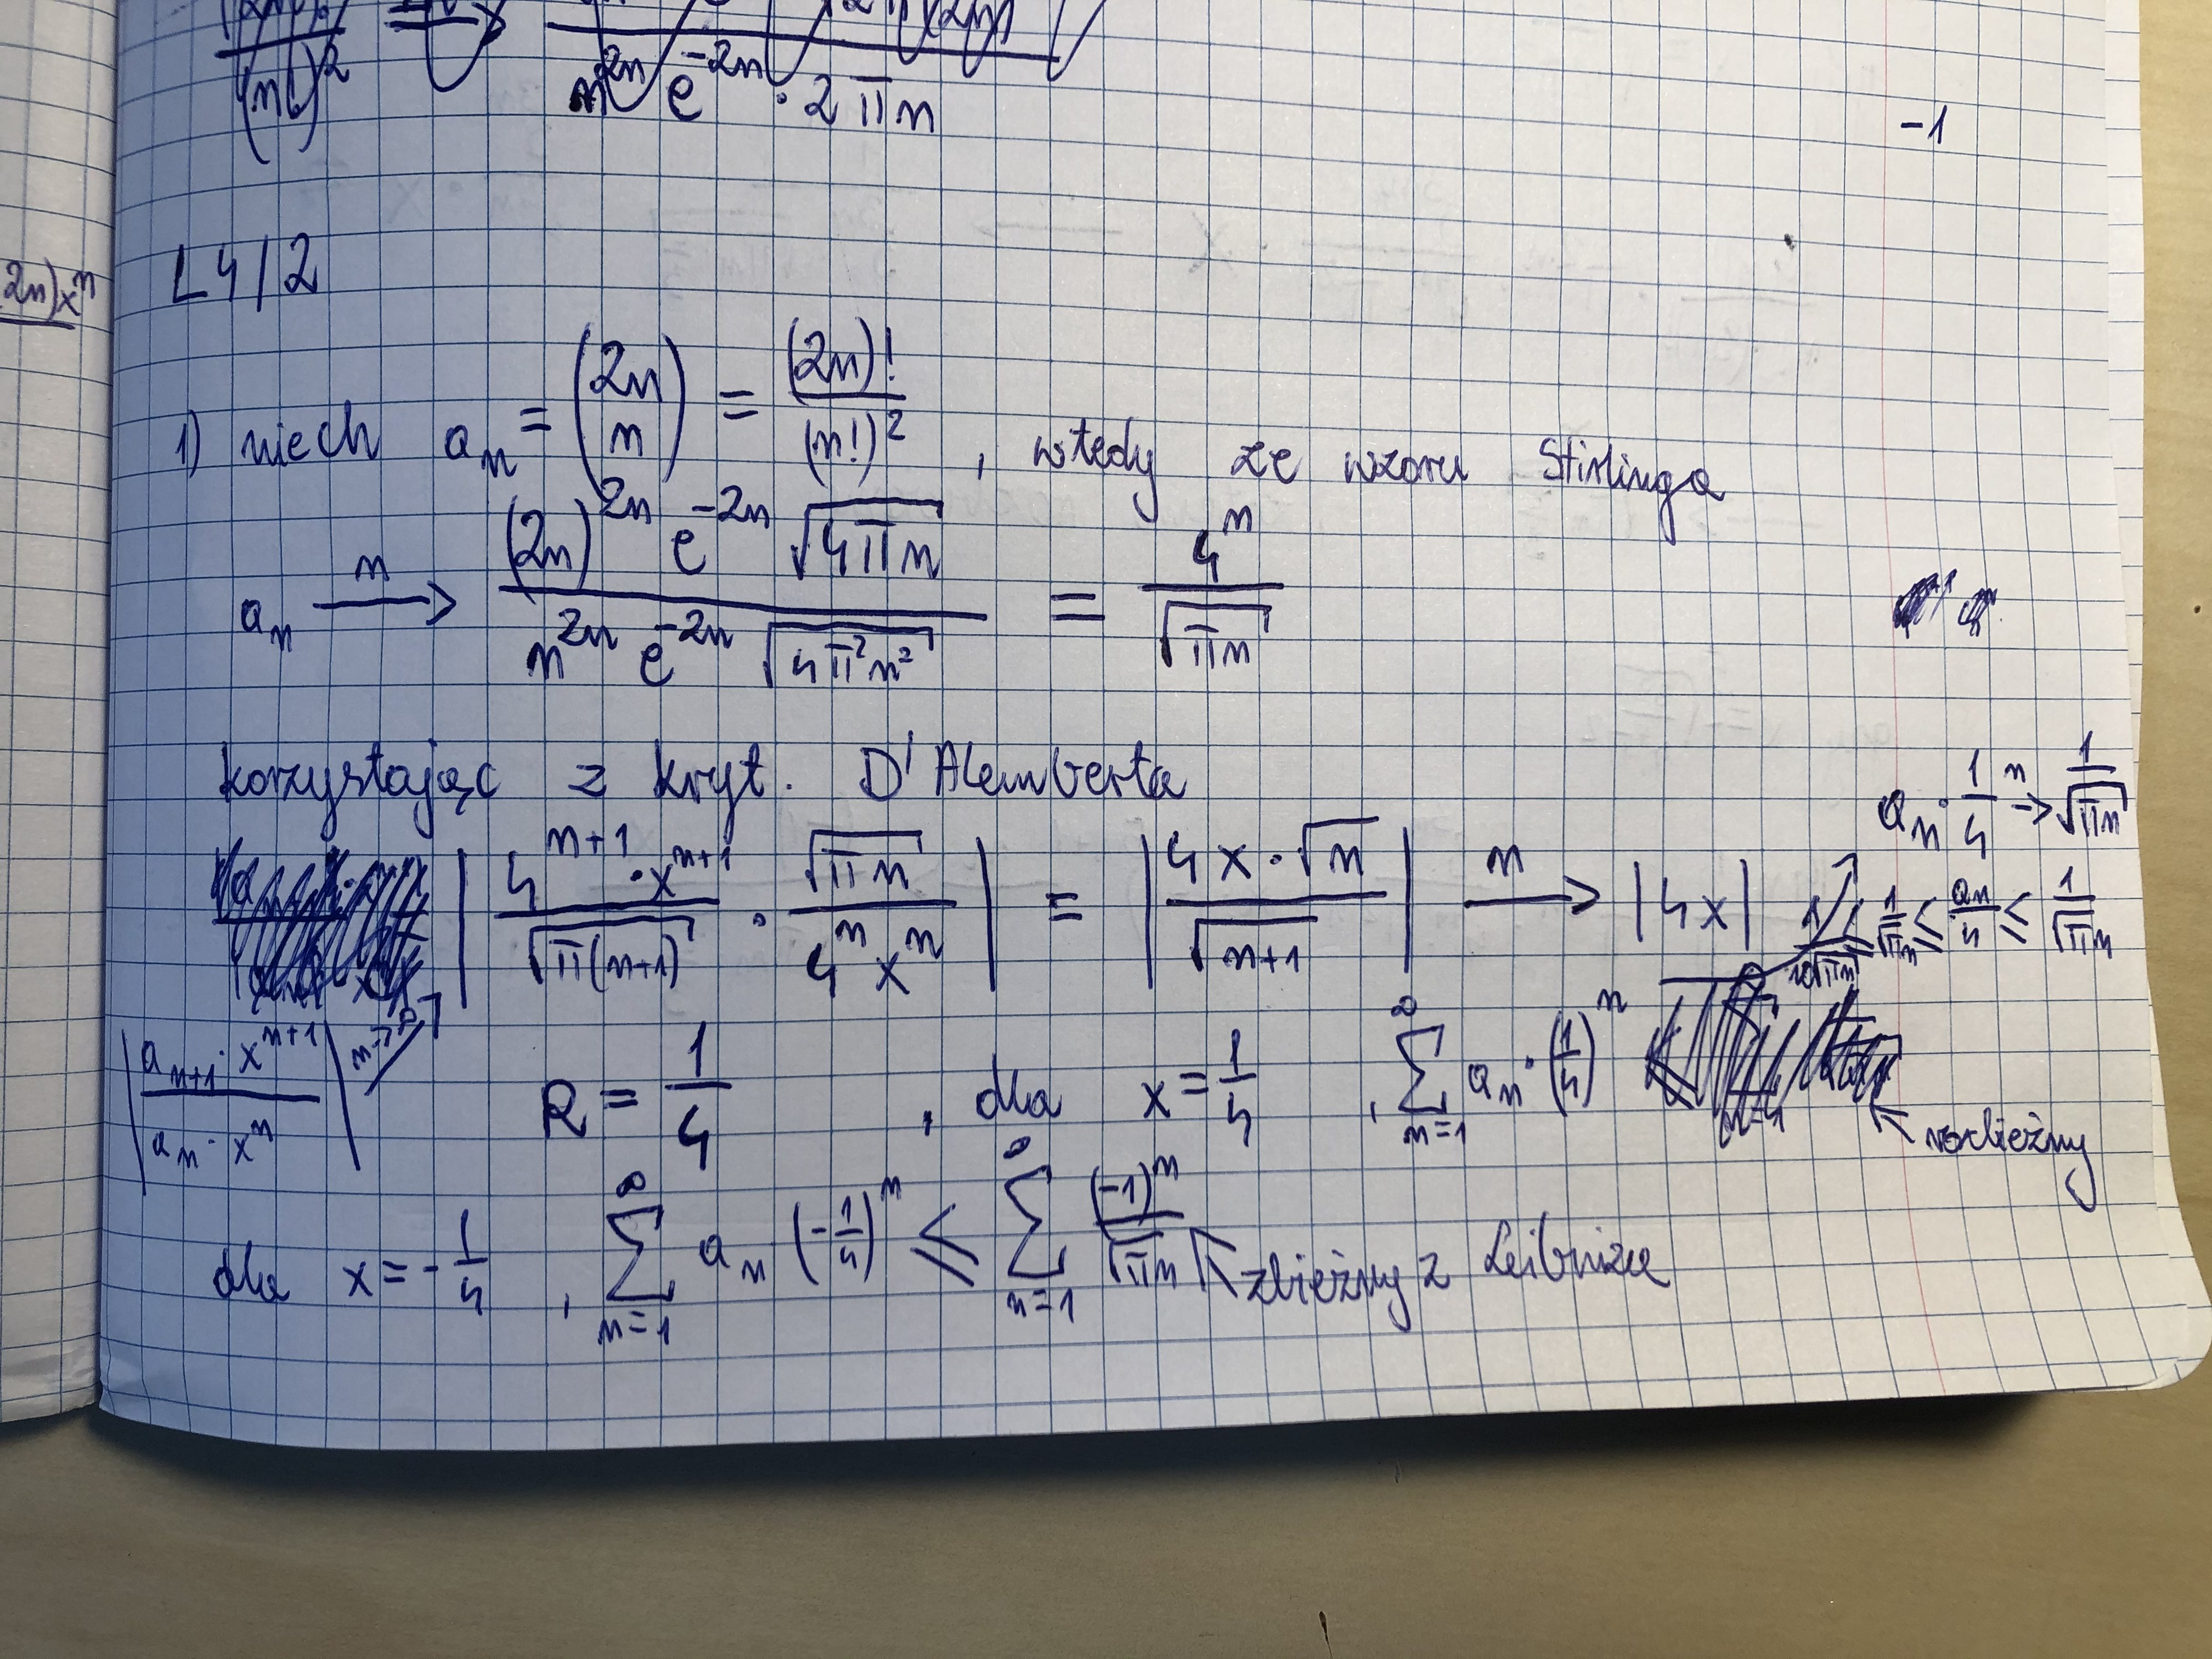 (n!)² n^{2n} e^{-2n} · 2πn
-1
2n)x^n
L4/2
1) niech a_n = \binom{2n}{n} = \frac{(2n)!}{(n!)^2} , wtedy ze wzoru Stirlinga
a_n \xrightarrow{n} \frac{(2n)^{2n} e^{-2n} \sqrt{4πn}}{n^{2n} e^{-2n} \sqrt{4π²n²}} = \frac{4^n}{\sqrt{πn}}
korzystając z kryt. D'Alemberta
a_n · \frac{1}{4} \xrightarrow{n} \frac{1}{\sqrt{πn}}
\left| \frac{4^{n+1} · x^{n+1}}{\sqrt{π(n+1)}} · \frac{\sqrt{πn}}{4^n x^n} \right| = \left| \frac{4x · \sqrt{n}}{\sqrt{n+1}} \right| \xrightarrow{n} |4x|
\frac{1}{\sqrt{πn}} ≤ \frac{a_n}{4} ≤ \frac{1}{\sqrt{πn}}
\left| \frac{a_{n+1} · x^{n+1}}{a_n · x^n} \right|
R = \frac{1}{4} , dla x = \frac{1}{4} , \sum_{n=1}^{∞} a_n · (\frac{1}{4})^n rozbieżny
dla x = -\frac{1}{4} , \sum_{n=1}^{∞} a_n · (-\frac{1}{4})^n ≤ \sum_{n=1}^{∞} \frac{(-1)^n}{\sqrt{πn}} zbieżny z Leibniza